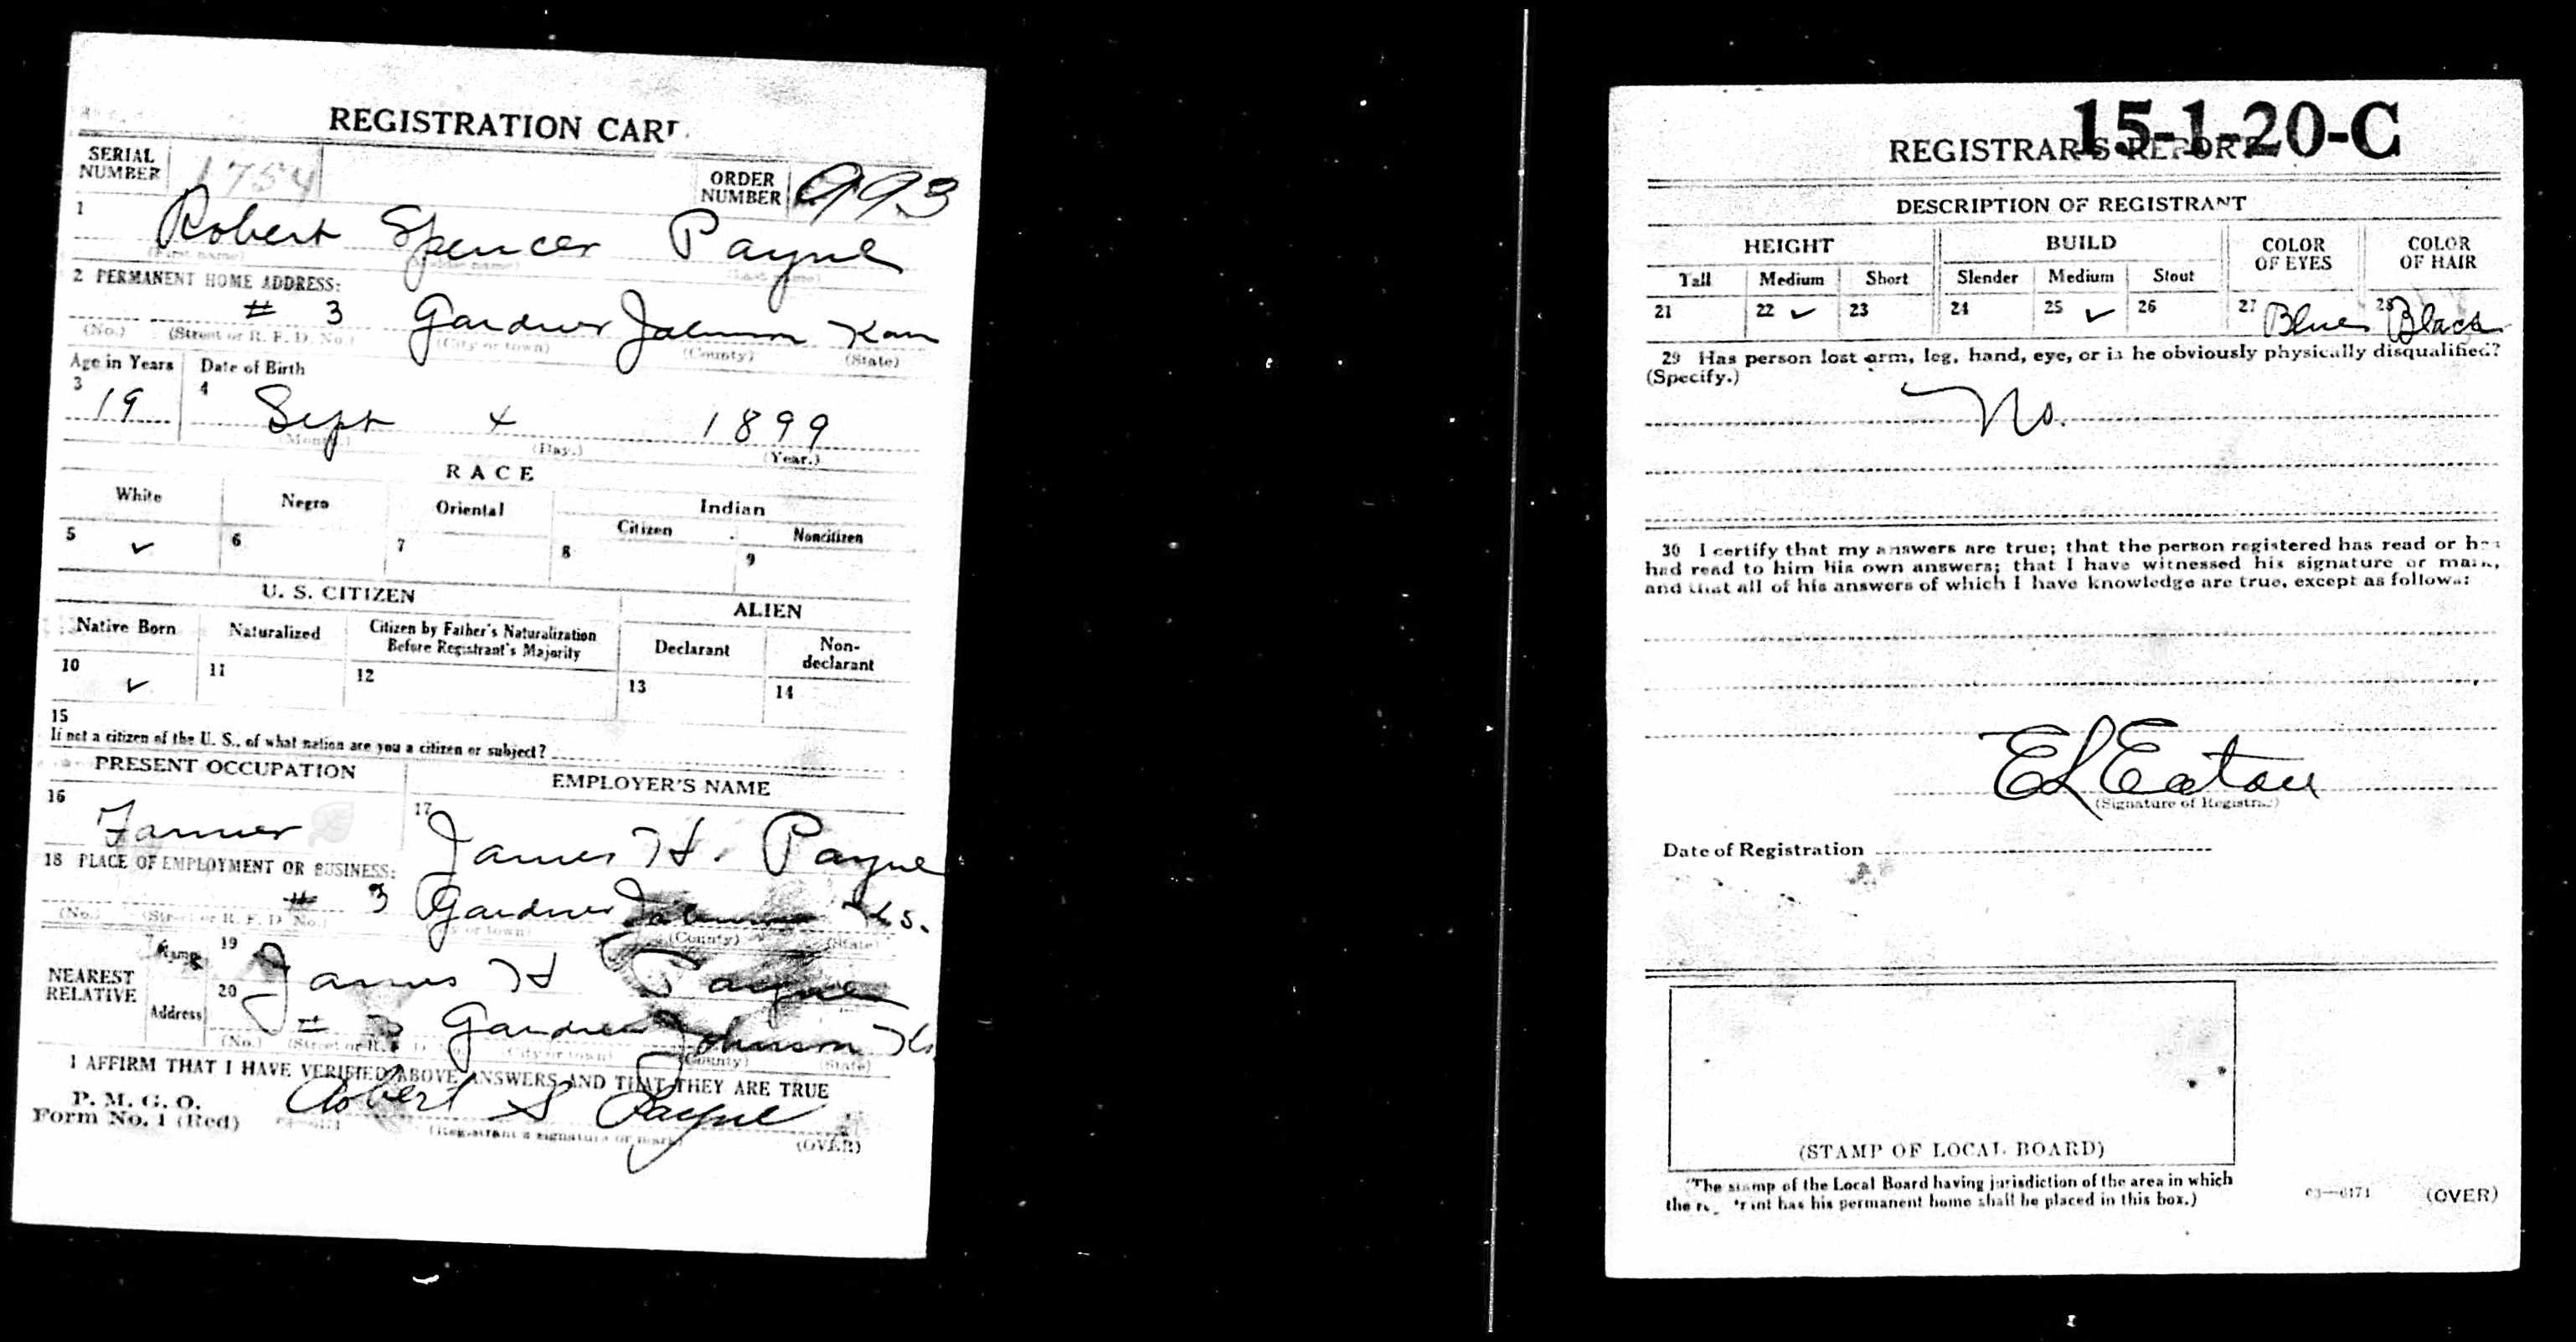 REGISTRATION CARD
SERIAL NUMBER 1754
ORDER NUMBER 993
1 Robert Spencer Payne
(First name) (Middle name) (Last name)
2 PERMANENT HOME ADDRESS:
# 3 Gardner Johnson Kan
(No.) (Street or R. F. D. No.) (City or town) (County) (State)
Age in Years Date of Birth
3 19 4 Sept 4 1899
(Month.) (Day.) (Year.)
RACE
White Negro Oriental Indian
Citizen Noncitizen
5 ✓ 6 7 8 9
U. S. CITIZEN ALIEN
Native Born Naturalized Citizen by Father's Naturalization Before Registrant's Majority Declarant Non-declarant
10 ✓ 11 12 13 14
15
If not a citizen of the U. S., of what nation are you a citizen or subject?
PRESENT OCCUPATION EMPLOYER'S NAME
16 Farmer 17 James H. Payne
18 PLACE OF EMPLOYMENT OR BUSINESS:
# 3 Gardner Johnson Ks.
(No.) (Street or R. F. D. No.) (City or town) (County) (State)
NEAREST RELATIVE
Name 19 James H Payne
Address 20 # 3 Gardner Johnson Ks
(No.) (Street or R. F. D. No.) (City or town) (County) (State)
I AFFIRM THAT I HAVE VERIFIED ABOVE ANSWERS AND THAT THEY ARE TRUE
P. M. G. O.
Form No. 1 (Red) Robert S Payne
(Registrant's signature or mark) (OVER)
15-1-20-C
REGISTRAR'S REPORT
DESCRIPTION OF REGISTRANT
HEIGHT BUILD COLOR OF EYES COLOR OF HAIR
Tall Medium Short Slender Medium Stout
21 22 ✓ 23 24 25 ✓ 26 27 Blue 28 Black
29 Has person lost arm, leg, hand, eye, or is he obviously physically disqualified?
(Specify.)
No.
30 I certify that my answers are true; that the person registered has read or has
had read to him his own answers; that I have witnessed his signature or mark,
and that all of his answers of which I have knowledge are true, except as follows:
E L Eaton
(Signature of Registrar)
Date of Registration
(STAMP OF LOCAL BOARD)
(The stamp of the Local Board having jurisdiction of the area in which
the registrant has his permanent home shall be placed in this box.)
03—6171 (OVER)